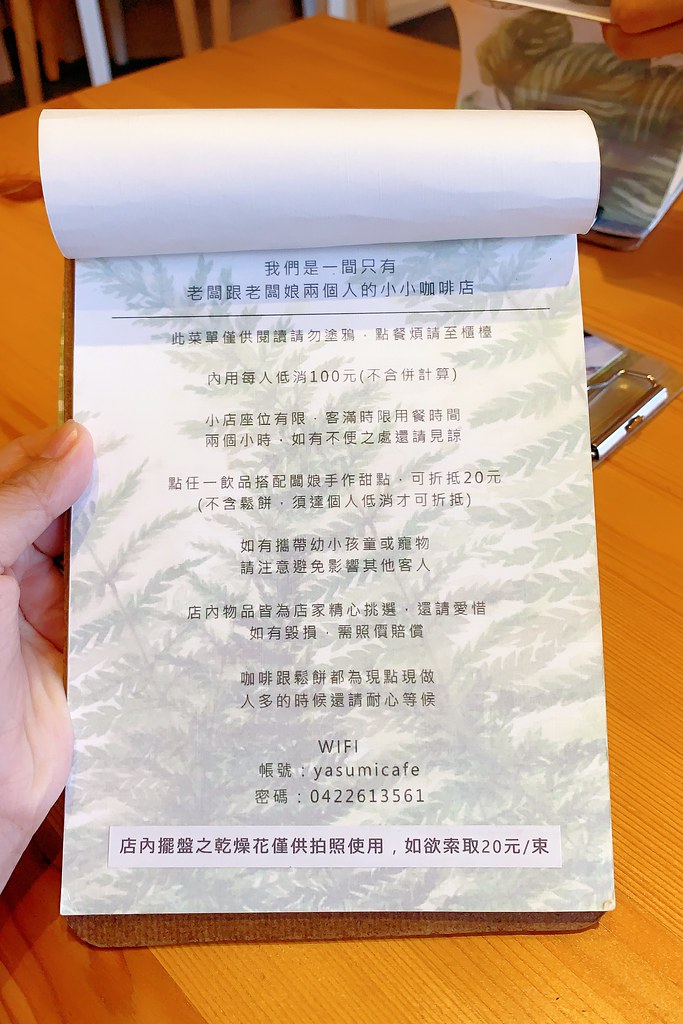 我們是一間只有
老闆跟老闆娘兩個人的小小咖啡店
此菜單僅供閱讀請勿塗鴉．點餐煩請至櫃檯
內用每人低消100元(不合併計算)
小店座位有限．客滿時限用餐時間
兩個小時．如有不便之處還請見諒
點任一飲品搭配闆娘手作甜點，可折抵20元
(不含鬆餅，須達個人低消才可折抵)
如有攜帶幼小孩童或寵物
請注意避免影響其他客人
店內物品皆為店家精心挑選，還請愛惜
如有毀損．需照價賠償
咖啡跟鬆餅都為現點現做
人多的時候還請耐心等候
WIFI
帳號：yasumicafe
密碼：0422613561
店內擺盤之乾燥花僅供拍照使用，如欲索取20元/束